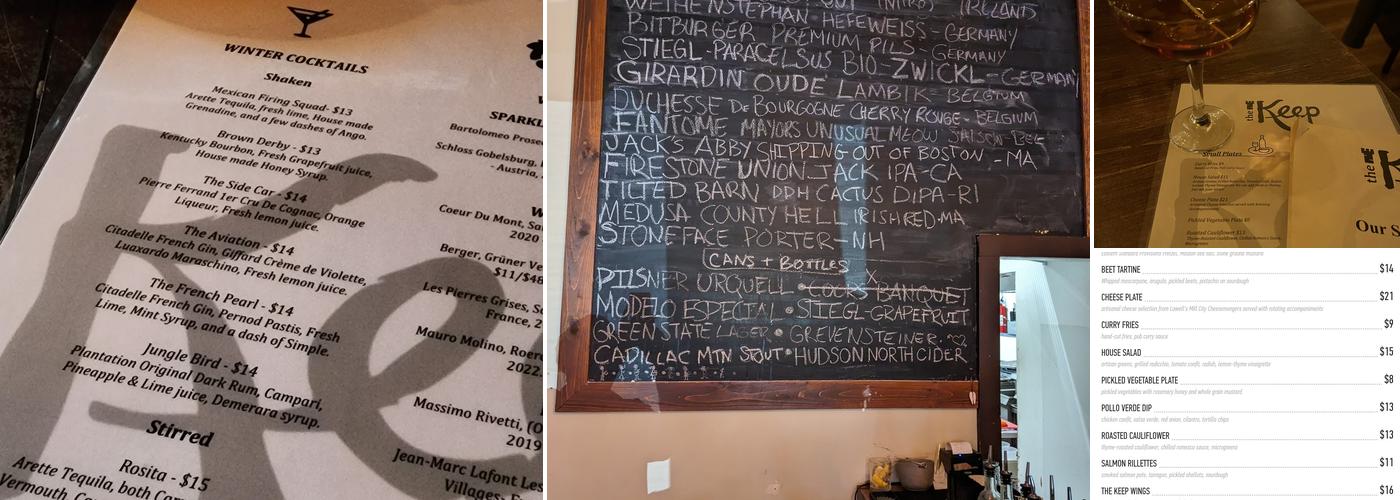 WINTER COCKTAILS
Shaken
Mexican Firing Squad- $13
Arette Tequila, fresh lime, House made
Grenadine, and a few dashes of Ango.
Brown Derby - $13
Kentucky Bourbon, Fresh Grapefruit juice,
House made Honey Syrup.
The Side Car - $14
Pierre Ferrand 1er Cru De Cognac, Orange
Liqueur, Fresh lemon juice.
The Aviation - $14
Citadelle French Gin, Giffard Crème de Violette,
Luaxardo Maraschino, Fresh lemon juice.
The French Pearl - $14
Citadelle French Gin, Pernod Pastis, Fresh
Lime, Mint Syrup, and a dash of Simple.
Jungle Bird - $14
Plantation Original Dark Rum, Campari,
Pineapple & Lime juice, Demerara syrup.
Stirred
Rosita - $15
Arette Tequila, both Cam
Vermouth,
SPARKL
Bartolomeo Prose
Schloss Gobelsburg,
- Austria,
Coeur Du Mont, Sa
2020
Berger, Grüner Ve
$11/$48
Les Pierres Grises, S
France, 2
Mauro Molino, Roer
2022
Massimo Rivetti, (O
2019
Jean-Marc Lafont Les
Villages
WEIHENSTEPHAN HEFEWEISS - GERMANY
BITBURGER PREMIUM PILS - GERMANY
STIEGL-PARACELSUS BIO-ZWICKL-GERMANY
GIRARDIN OUDE LAMBIK - BELGIUM
DUCHESSE DE BOURGOGNE CHERRY ROUGE - BELGIUM
FANTOME MAYORS UNUSUAL MEOW SAISON-BEL
JACK'S ABBY SHIPPING OUT OF BOSTON - MA
FIRESTONE UNION JACK IPA-CA
TILTED BARN DDH CACTUS DIPA-RI
MEDUSA COUNTY HELL IRISH RED-MA
STONEFACE PORTER-NH
CANS + BOTTLES
PILSNER URQUELL • COORS BANQUET
MODELO ESPECIAL • STIEGL-GRAPEFRUIT
GREEN STATE LAGER • GREVENSTEINER
CADILLAC MTN STOUT • HUDSON NORTH CIDER
the Keep
Small Plates
Curry Fries $9
House Salad $15
Cheese Plate $21
Pickled Vegetable Plate $8
Roasted Cauliflower $13
the
Our S
BEET TARTINE $14
Whipped mascarpone, arugula, pickled beets, pistachio on sourdough
CHEESE PLATE $21
artisanal cheese selection from Lowell's Mill City Cheesemongers served with rotating accompaniments
CURRY FRIES $9
hand-cut fries, pub curry sauce
HOUSE SALAD $15
artisan greens, grilled radicchio, tomato confit, radish, lemon-thyme vinaigrette
PICKLED VEGETABLE PLATE $8
pickled vegetables with rosemary honey and whole grain mustard
POLLO VERDE DIP $13
chicken confit, salsa verde, red onion, cilantro, tortilla chips
ROASTED CAULIFLOWER $13
thyme-roasted cauliflower, chilled romesco sauce, microgreens
SALMON RILLETTES $11
smoked salmon pate, tarragon, pickled shallots, sourdough
THE KEEP WINGS $16